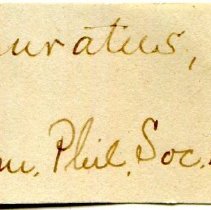 uratus,
m. Phil. Soc.